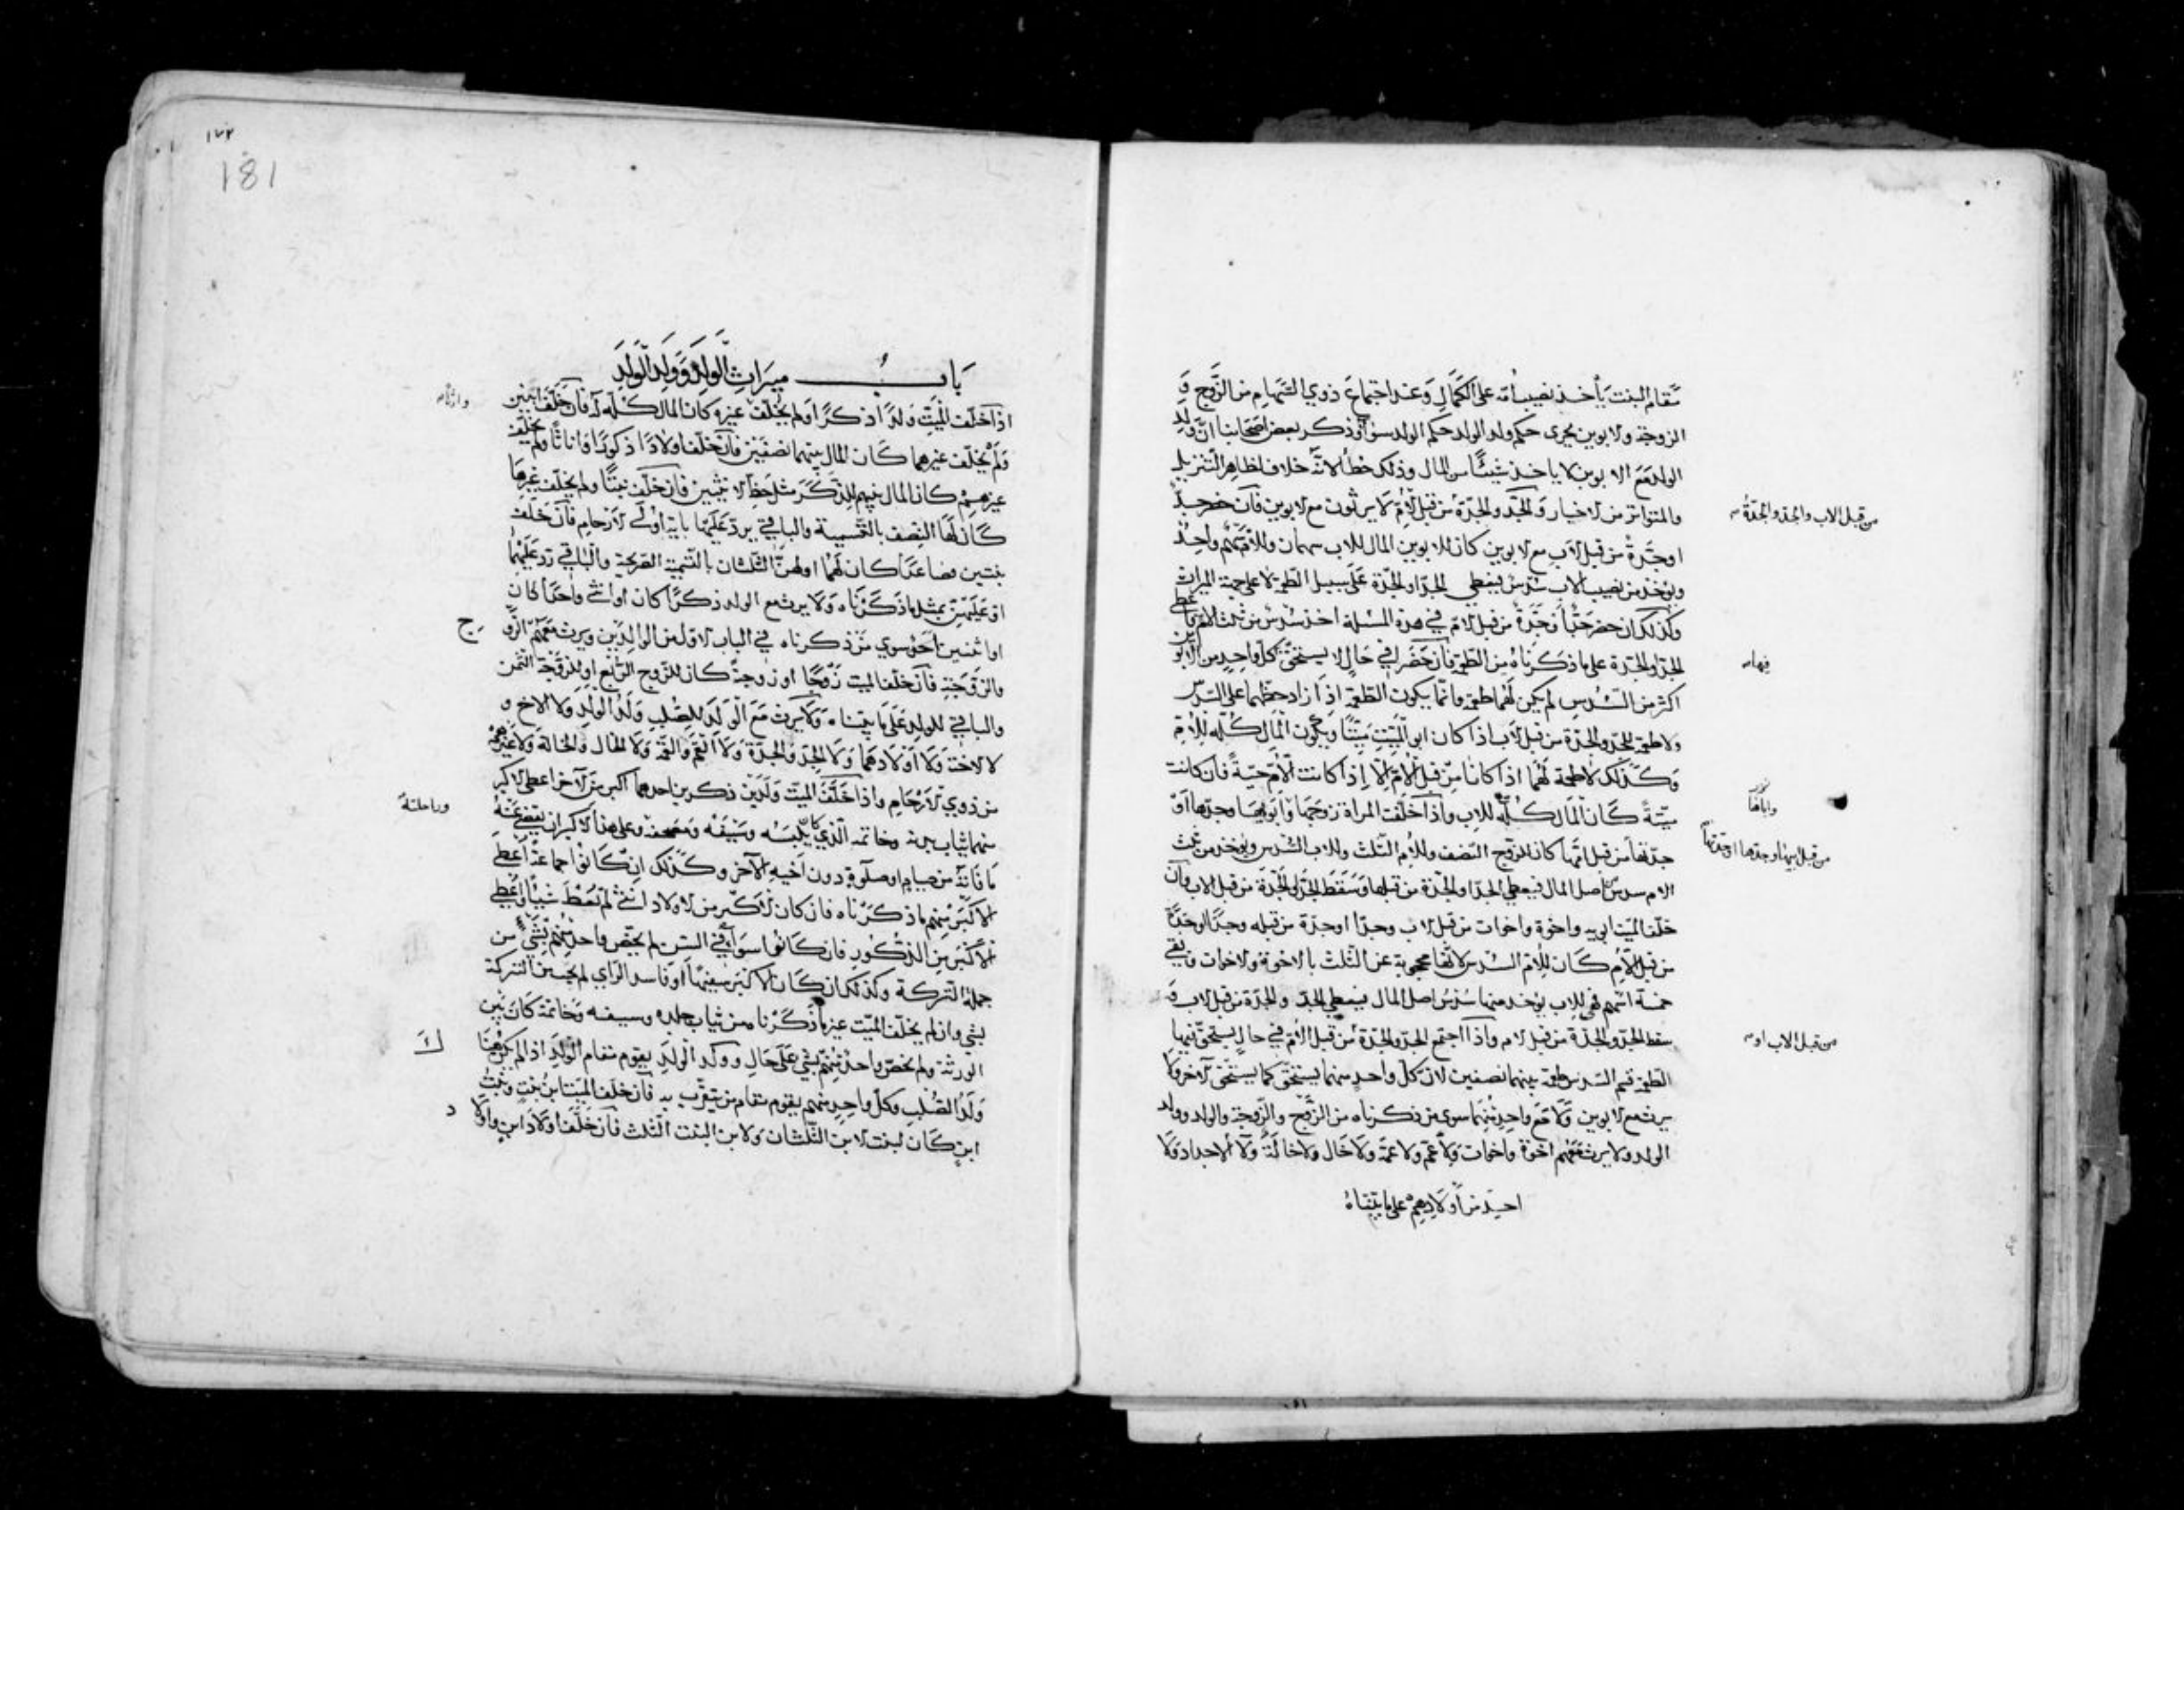 مقام البنت يأخذ نصيب أمه على الكمال وعند اجتماع ذوي السهام من الزوج و
الزوجة والابوين يجرى حكم ولد الولد حكم الولد سواء وذكر بعض اصحابنا ان ولد
الولد مع الابوين لا ياخذ شيئًا من المال وذلك خطأ لانه خلاف لظاهر التنزيل
والمتواتر من الاخبار والجد والجدة من قبل الأم لا يرثون مع الابوين فان حضر جد
من قبل الاب والجد والجدة
او جدة من قبل الاب مع الابوين كان للابوين المال للاب سهمان وللأم سهم واحد
ويؤخذ من نصيب الاب سدس فيعطي الجد او الجدة على سبيل الطعمة لا على جهة الميراث
وكذلك ان حضر جد أو جدة من قبل الام في هذه المسئلة اخذ سدس من ثلث الام فاعطي
الجد والجدة على ما ذكرناه من الطعمة فان حضر في حال لا يستحق كل واحد من الابوين
فيها
اكثر من السدس لم يكن لهما طعمة وانما يكون الطعمة اذا زاد حظهما على السدس
ولا طعمة للجد والجدة من قبل الاب اذا كان ابو الميت ميتًا ويكون المال كله للام
وكذلك لا طعمة لهما اذا كانا من قبل الام الا اذا كانت الأم حية فان كانت
ميتة كان المال كله للاب واذا خلفت المراة زوجها وابويها وجدها او
جدتها من قبل امها كان للزوج النصف وللأم الثلث وللاب السدس ويؤخذ من ثلث
من قبل ابيها وجدها او جدتها
الام سدس اصل المال فيعطي الجد او الجدة من قبلها وسقط الجد والجدة من قبل الاب وان
خلف الميت ابويه واخوة واخوات من قبل الاب وجدا او جدة من قبله وجدًا او جدة
من قبل الأم كان للأم السدس لانها محجوبة عن الثلث بالاخوة والاخوات وبقي
خمسة اسهم فهي للاب يؤخذ منها سدس اصل المال فيعطي الجد والجدة من قبل الاب و
سقط الجد والجدة من قبل الام واذا اجتمع الجد والجدة من قبل الأم في حال يستحق فيها
من قبل الاب او
الطعمة قسم السدس طعمة بينهما نصفين لان كل واحد منهما يستحق كما يستحق الآخر ولا
يرث مع الابوين ولا مع واحد منهما سوى من ذكرناه من الزوج والزوجة والولد وولد
الولد ولا يرث معهم اخوة واخوات ولا عم ولا عمة ولا خال ولا خالة ولا الاجداد ولا
احد من أولادهم على ما بيناه
١٧٢
181
باب ميراث الولد وولد الولد
اذا خلف الميت ولدًا ذكرًا ولم يخلف غيره كان المال كله له فان خلف اثنين
ولم يخلف غيرهما كان المال بينهما نصفين فان خلف اولادًا ذكورًا واناثًا ولم يخلف
غيرهم كان المال بينهم للذكر مثل حظ الانثيين فان خلف بنتًا ولم يخلف غيرها
كان لها النصف بالتسمية والباقي يرد عليها باية اولى الارحام فان خلف
بنتين فصاعدًا كان لهما او لهن الثلثان بالتسمية الصريحة والباقي رد عليهما
او عليهن بمثل ما ذكرناه ولا يرث مع الولد ذكرًا كان أو انثى واحدًا كان
او اثنين احد سوي من ذكرناه في الباب الاول من الوالدين ويرث معهم الزوج
والزوجة فان خلف الميت زوجًا او زوجة كان للزوج الربع او للزوجة الثمن
والباقي للولد على ما بيناه ولا يرث مع الولد للصلب ولد الولد ولا الاخ و
لا الاخت ولا أولادهما ولا الجد والجدة ولا العم والعمة ولا الخال والخالة ولا غيرهم
من ذوي الارحام واذا خلف الميت ولدين ذكرين احدهما اكبر من الآخر اعطى الاكبر
منهما ثياب بدنه وخاتمه الذي كان يلبسه وسيفه ومصحفه وعلى هذا الاكبر ان يقضي عنه
وراحلته
ما فاته من صيام او صلوة دون اخيه الآخر وكذلك ان كانوا جماعة اعطى
الاكبر منهم ما ذكرناه فان كان الاكبر من الاولاد انثى لم تعط شيئًا واعطي
الاكبر من الذكور فان كانوا سواء في السن لم يخص واحد منهم بشيء من
جملة التركة وكذلك ان كان الاكبر سفيهًا او فاسد الراي لم يحب من التركة
بشي وان لم يخلف الميت غير ما ذكرنا من ثياب جلده وسيفه وخاتمه كان بين
الورثة ولم يخص واحد منهم بشي على حال وولد الولد يقوم مقام الولد اذا لم يكن هنا
لك
ولد الصلب وكل واحد منهم يقوم مقام من يتقرب به فان خلف الميت ابن بنت وبنت
ابن كان لبنت الابن الثلثان ولابن البنت الثلث فان خلف اولاد ابن واولا
د